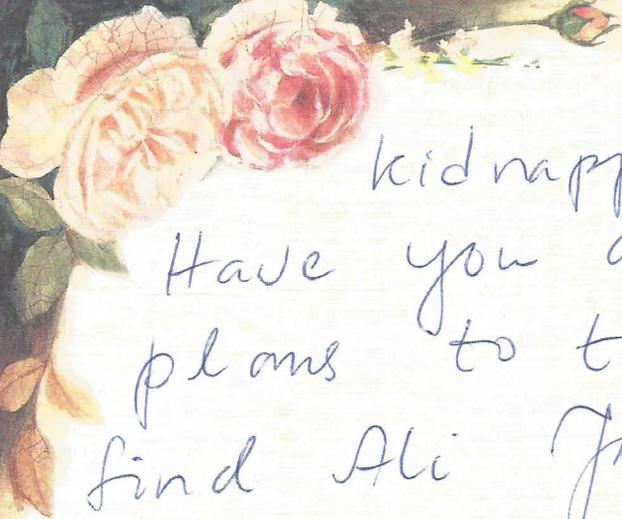 kidnapp
Have you
plans to t
find Ali